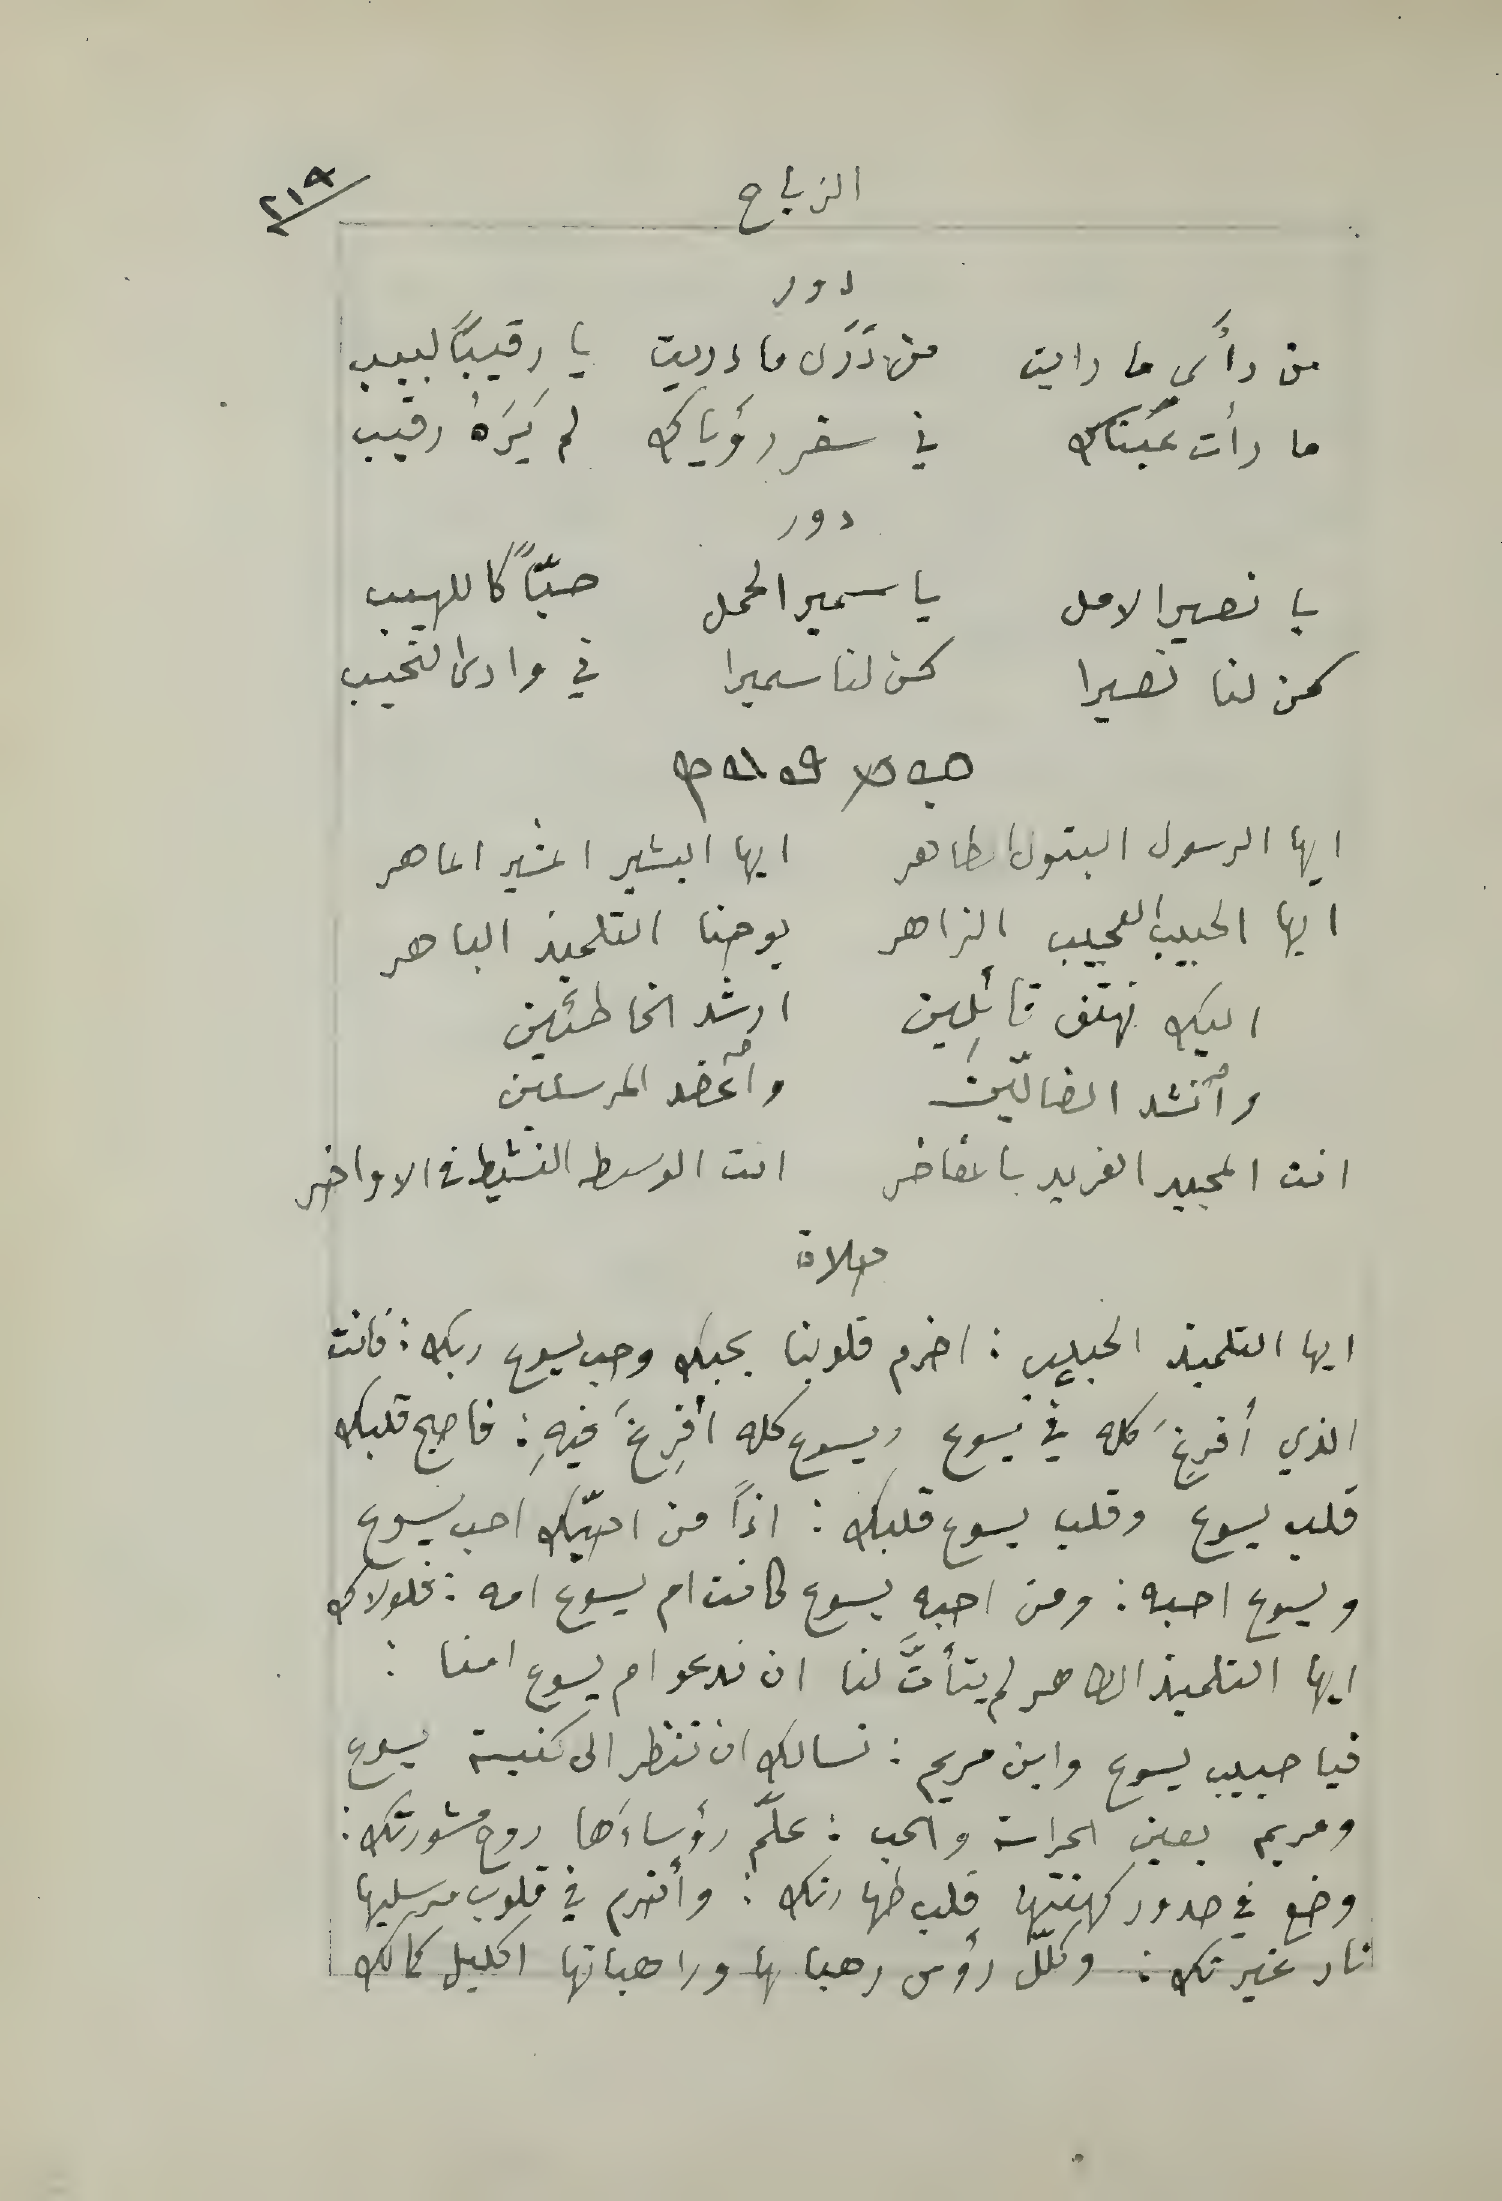 الزياح
٢١٩
دور
من رأى ما رايت من دَرَى ما دريت يا رقيبًا لبيب
ما رأت عينَاك في سفر رؤياك لم يَرَهُ رقيب
دور
يا نصير الامل يا سمير الحمل حبّاً كاللهيب
كن لنا نصيرا كن لنا سميرا في وادى النحيب
ايها الرسول البتول الطاهر ايها البشير المنير الماهر
ايها الحبيب العجيب الزاهر يوحنا التلميذ الباهر
اليك نهتف قائلين ارشد الخاطئين
وٱنشد الضالّين وٱعضد المرسلين
انت المجيد الفريد بالمفاخر انت الوسيط النشيط في الاواخر
صلاة
ايها التلميذ الحبيب : اضرم قلوبنا بحبك وحب يسوع ربك : فانت
الذي أفرغَ كله في يسوع ويسوع كله أفرِغَ فيهِ : فاصبح قلبك
قلب يسوع وقلب يسوع قلبك : اذاً من احبّك احب يسوع
ويسوع احبه : ومن احبه يسوع كانت ام يسوع امه : فلولاك
ايها التلميذ الطاهر لم يتأتَّ لنا ان ندعو ام يسوع امنا :
فيا حبيب يسوع وابن مريم : نسالك ان تنظر الى كنيسة يسوع
ومريم بعين الحراسة والحب : علّم رؤساءَها روح مشورتك :
وضع في صدور كهنتها قلب طهارتك : وأضرم في قلوب مرسليها
نار غيرتك : وكلّل رؤس رهبانها وراهباتها اكليل كمالك